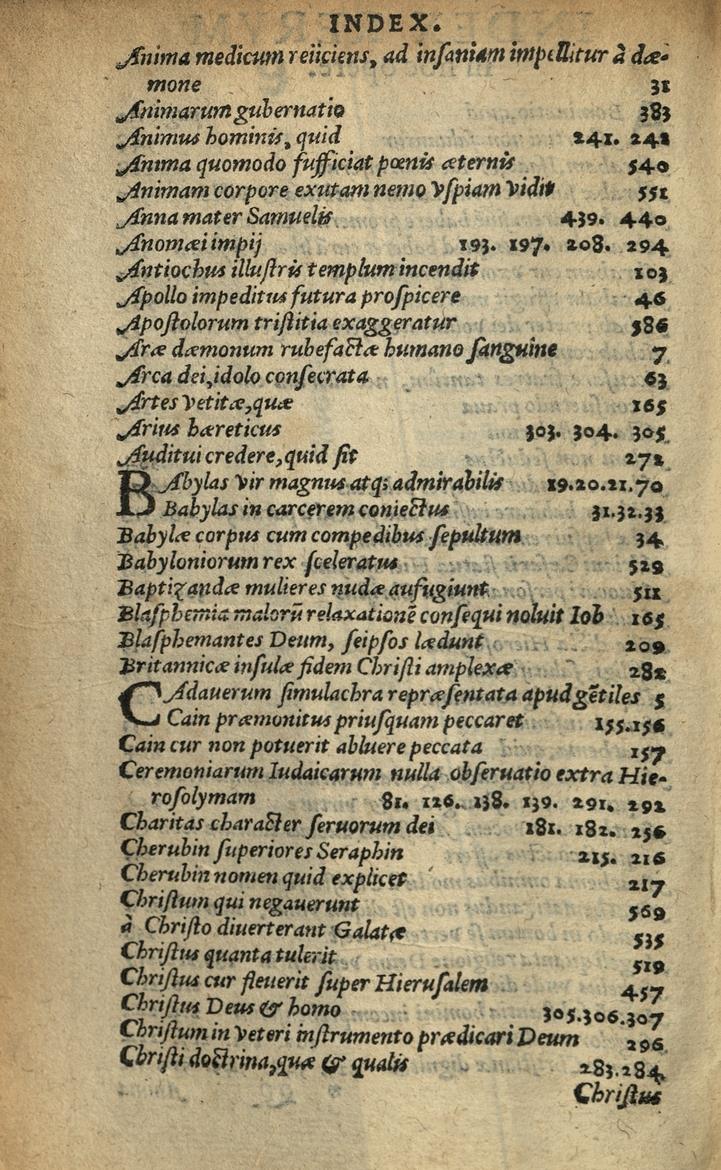 INDEX.
Anima medicum reiiciens, ad inſaniam impellitur à dæ-
mone 31
Animarum gubernatio 383
Animus hominis, quid 241. 242
Anima quomodo ſufficiat pœnis æternis 540
Animam corpore exutam nemo vſpiam vidit 551
Anna mater Samuelis 439. 440
Anomæi impij 193. 197. 208. 294
Antiochus illuſtris templum incendit 103
Apollo impeditus futura proſpicere 46
Apoſtolorum triſtitia exaggeratur 586
Aræ dæmonum rubefactæ humano ſanguine 7
Arca dei, idolo conſecrata 63
Artes vetitæ, quæ 165
Arius hæreticus 303. 304. 305
Auditui credere, quid ſit 272
BAbylas vir magnus atq; admirabilis 19.20.21.70
Babylas in carcerem coniectus 31.32.33
Babylæ corpus cum compedibus ſepultum 34
Babyloniorum rex ſceleratus 529
Baptizandæ mulieres nudæ aufugiunt 511
Blaſphemia malorū relaxationē conſequi noluit Iob 165
Blaſphemantes Deum, ſeipſos lædunt 209
Britannicæ inſulæ fidem Chriſti amplexæ 282
CAdauerum ſimulachra repræſentata apud gẽtiles 5
Cain præmonitus priuſquam peccaret 155.156
Cain cur non potuerit abluere peccata 157
Ceremoniarum Iudaicarum nulla obſeruatio extra Hie-
roſolymam 81. 126. 138. 139. 291. 292
Charitas character ſeruorum dei 181. 182. 256
Cherubin ſuperiores Seraphin 215. 216
Cherubin nomen quid explicet 217
Chriſtum qui negauerunt 569
à Chriſto diuerterant Galatæ 535
Chriſtus quanta tulerit 519
Chriſtus cur fleuerit ſuper Hieruſalem 457
Chriſtus Deus & homo 305.306.307
Chriſtum in veteri inſtrumento prædicari Deum 296
Chriſti doctrina, quæ & qualis 283.284
Chriſtus